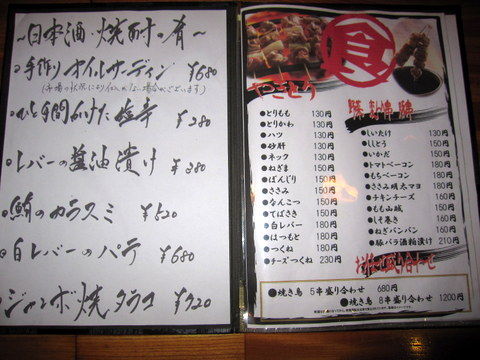 ~日本酒・焼酎の肴~
手作りオイルサーディン ¥680
ひと手間かけた塩辛 ¥280
レバーの醤油漬け ¥380
鮪のカラスミ ¥520
白レバーのパテ ¥680
ジャンボ焼タラコ ¥720
食
やきとり
●とりもも 130円
●とりかわ 130円
●ハツ 130円
●砂肝 130円
●ネック 130円
●ねぎま 150円
●ぼんじり 150円
●ささみ 150円
●なんこつ 150円
●てばさき 150円
●白レバー 180円
●はつもと 180円
●つくね 180円
●チーズつくね 230円
●しいたけ 130円
●ししとう 150円
●いかだ 150円
●トマトベーコン 180円
●もちベーコン 180円
●ささみ明太マヨ 180円
●チキンチーズ 160円
●もも山賊 150円
●しそ巻き 160円
●ねぎバンバン 160円
●豚バラ酒粕漬け 210円
●焼き鳥 5串盛り合わせ 680円
●焼き鳥 8串盛り合わせ 1200円